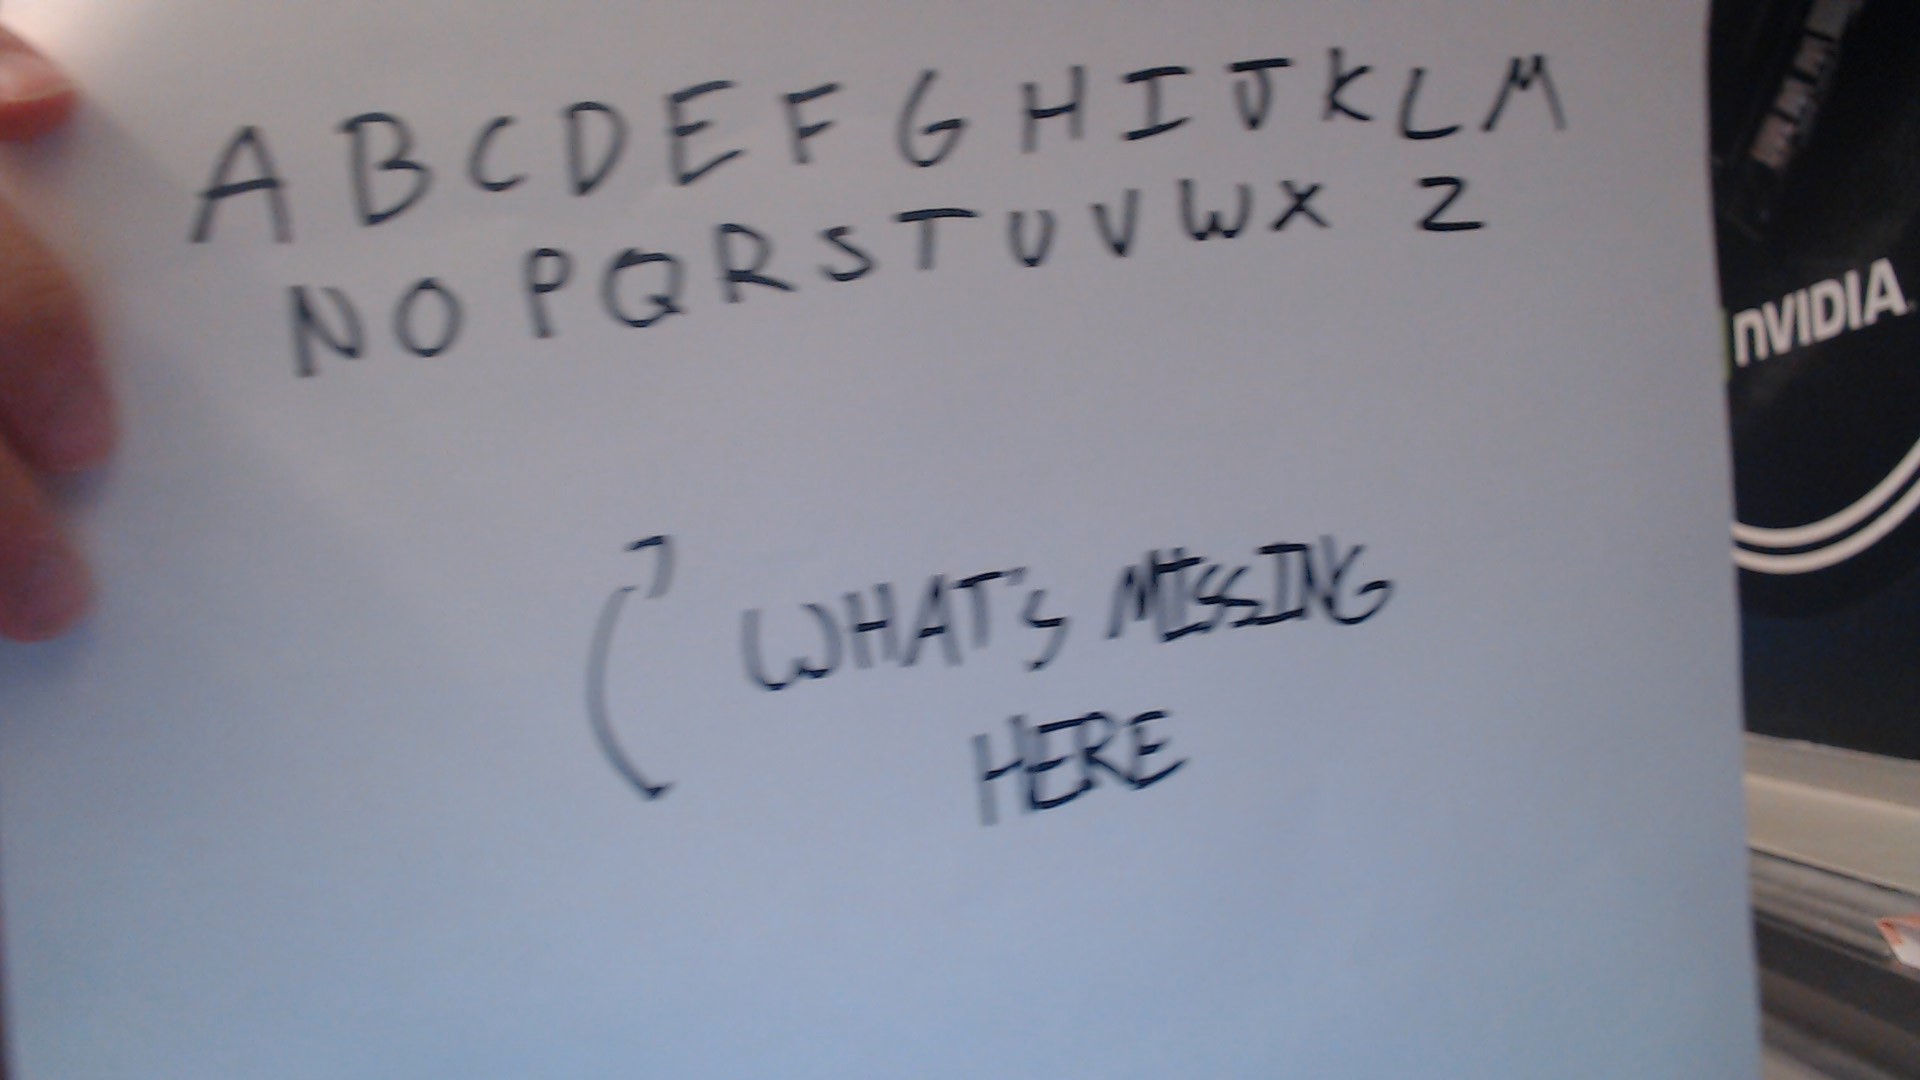 A B C D E F G H I J K L M
N O P Q R S T U V W X Z
WHAT's MISSING
HERE
nVIDIA